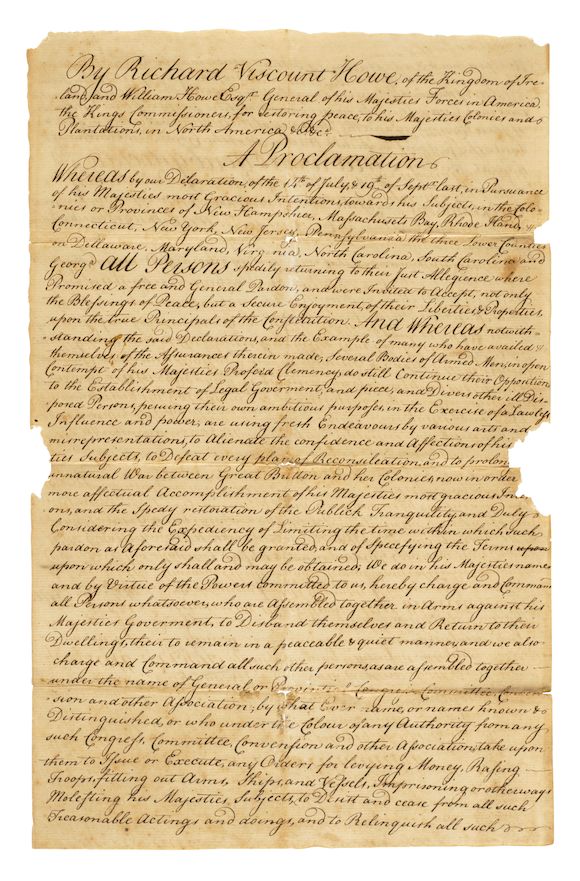 By Richard Viscount Howe, of the Kingdom of Ire-
land, and William Howe Esqr. General of his Majesties Forces in America,
the Kings Commissioners, for restoring peace, to his Majesties Colonies and
Plantations, in North America &c &c.
A Proclamation
Whereas by our Declaration, of the 14th of July, & 19th of Septr. last, in Pursuance
of his Majesties most Gracious Intention, towards his Subjects, in the Colo-
nies or Provinces of New Hampshier, Massachusets Bay, Rhode Iland,
Connecticut, New York, New Jersey, Pennsylvania the three Lower Counties
on Dellaware, Maryland, Virginia, North Carolina, South Carolina and
Georga All Persons spedily returning to their just Allegience where
Promised a free and General Pardon, and were Invited to Accept, not only
the Blessings of Peace, but a Secure Enjoyment, of their Liberties & Properties,
upon the true Principals of the Constitution. And Whereas notwith-
standing the said Declarations, and the Example of many who have availed
themselves of the Assurances therein made, Several Bodies of Armed Men, in open
Contempt of his Majesties Proferd Clemency, do still Continue their Opposition
to the Establishment of Legal Goverment, and piece, and Divers other ill Dis-
posed Persons, pesuing their own ambitious purposes, in the Exercise of a Lawless
Influence and power, are using fresh Endeavours by various arts and
misrepresentations, to Alienate the confidence and Affections of his
ties Subjects, to Defeat every plan of Reconsileation, and to prolon
unnatural War between Great Britton and her Colonies, now in order
more affectual Accomplishment of his Majesties most gracious Inten
ons, and the Spedy restoration of the Publick Tranquility, and Duly
Considering the Expediency of Limiting the time within which Such
pardon as Aforesaid shall be granted, and of Speecefying the Terms upon
upon which only shall and may be obtained, We do in his Majesties name
and by Virtue of the Powers committed to us, hereby charge and Comman
all Persons whatsoever, who are Assembled together in Arms against his
Majesties Goverment, to Disband themselves and Return to their
Dwellings, their to remain in a peaceable & quiet manner, and we also
charge and Command all such other persons, as are assembled together
under the name of General or Congress Committee, Conven
sion and other Association, by what Ever name, or names known &
Distinguished, or who under the Colour of any Authority from any
such Congress, Committee, Convension and other Association, take upon
them to Issue or Execute, any Orders for levying Money, Rasing
Troops, fitting out Arms, Ships, and Vessels, Imprisoning or otherways
Molesting his Majesties, Subjects, to Desist and cease from all such
Treasonable Actings and doings, and to Relinquish all such